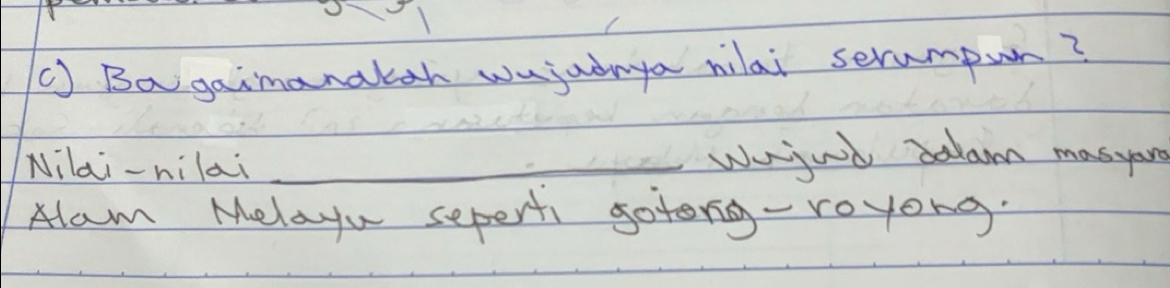 c) Bagaimanakah wujudnya nilai serumpun?
Nilai-nilai ____________ wujud dalam masyara
Alam Melayu seperti gotong-royong.